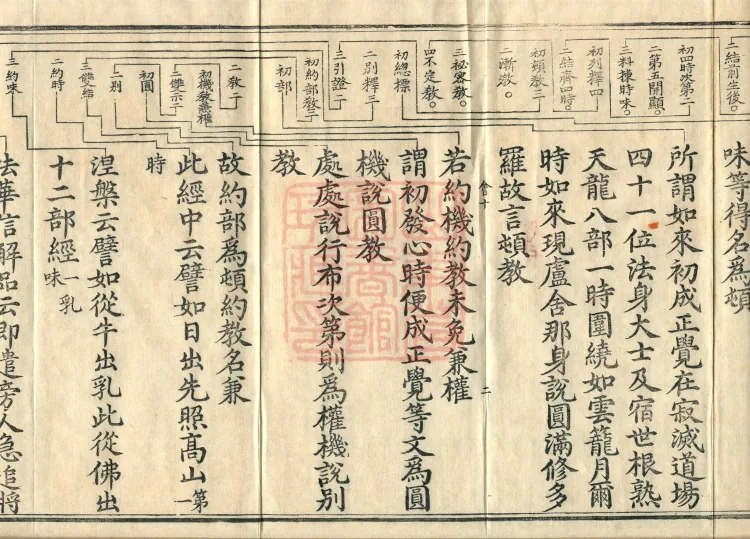 二結前生後。
初四時次第二
二第五開顯。
三料揀時味。
初列釋四
二結齊四時。
初頓教三
二漸教。
三秘密教。
四不定教。
初總標
二別釋三
三引證二
初約部教二
初部
二教二
初機教兼權
二雙示二
初圓
二別
三雙結
二約時
三約味
味等得名為頓
所謂如來初成正覺在寂滅道場
四十一位法身大士及宿世根熟
天龍八部一時圍繞如雲籠月爾
時如來現盧舍那身說圓滿修多
羅故言頓教
若約機約教未免兼權
謂初發心時便成正覺等文為圓
機說圓教
處處說行布次第則為權機說別
教
故約部為頓約教名兼
此經中云譬如日出先照高山第一
時
涅槃云譬如從牛出乳此從佛出
十二部經一乳味
法華信解品云即遣旁人急追將
二